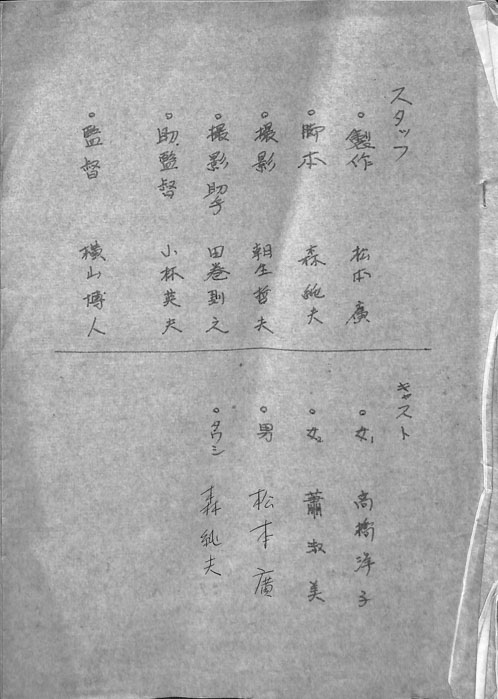 スタッフ
○製作 松本廣
○脚本 森純夫
○撮影 朝生哲夫
○撮影助手 田巻
○助監督 小林英夫
○監督 横山博人
キャスト
○女1 高橋洋子
○女2 蕭淑美
○男 松本廣
○タワシ 森純夫